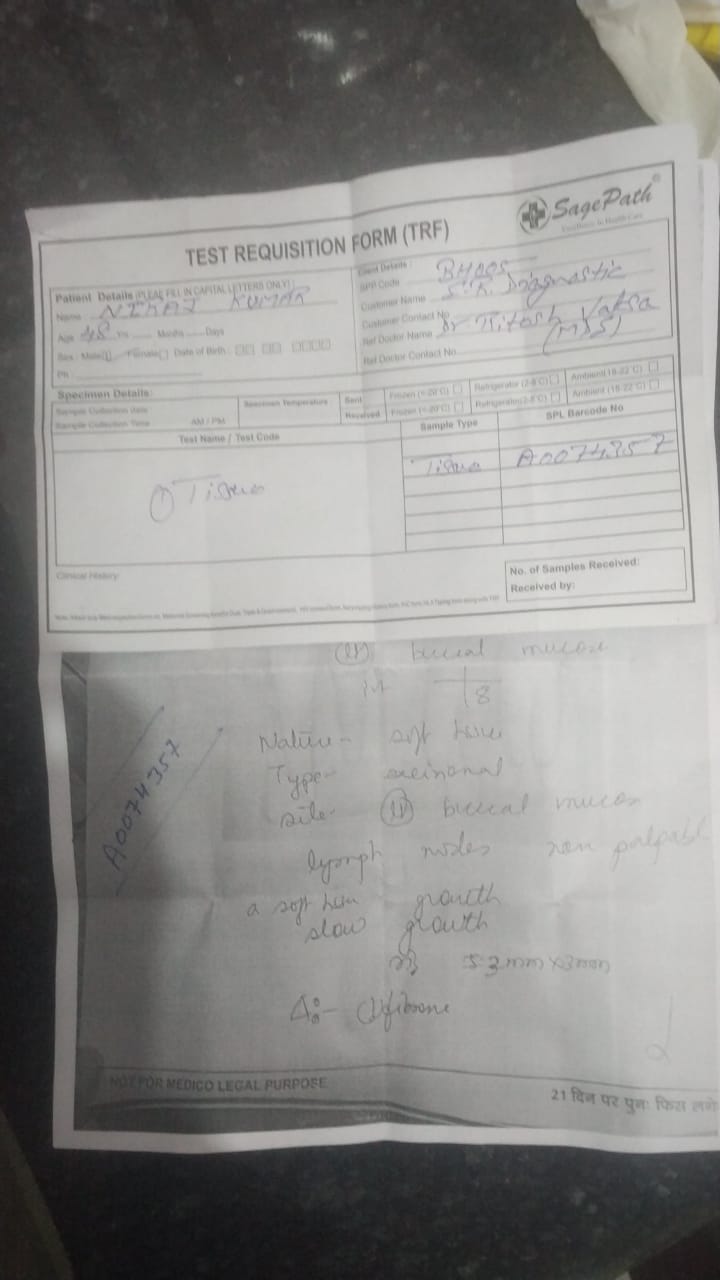 SagePath®
Excellence In Health Care
TEST REQUISITION FORM (TRF)
Patient Details (PLEAE FILL IN CAPITAL LETTERS ONLY)
Name KUMAR
Age 48 Yrs Months Days
Sex : Male Female Date of Birth :
Ph :
Client Details :
SPP Code BH005
Customer Name S.R. Diagnostic
Customer Contact No
Ref Doctor Name Dr. Ritosh Vatsa
(MDS)
Ref Doctor Contact No
Specimen Details:
Sample Collection Date
Sample Collection Time AM / PM
Specimen Temperature
Sent Frozen (<-20°C) Refrigerator (2-8°C) Ambient (18-22°C)
Received Frozen (<-20°C) Refrigerator (2-8°C) Ambient (18-22°C)
Test Name / Test Code Sample Type SPL Barcode No
① Tissue Tissue A0074357
Clinical History:
No. of Samples Received:
Received by:
buccal mucosa
8
A0074357
Nature - soft
Type- excisional
site- buccal mucosa
lymph nodes non palpable
a soft growth
slow growth
NOT FOR MEDICO LEGAL PURPOSE
21 दिन पर पुनः फिस लगे